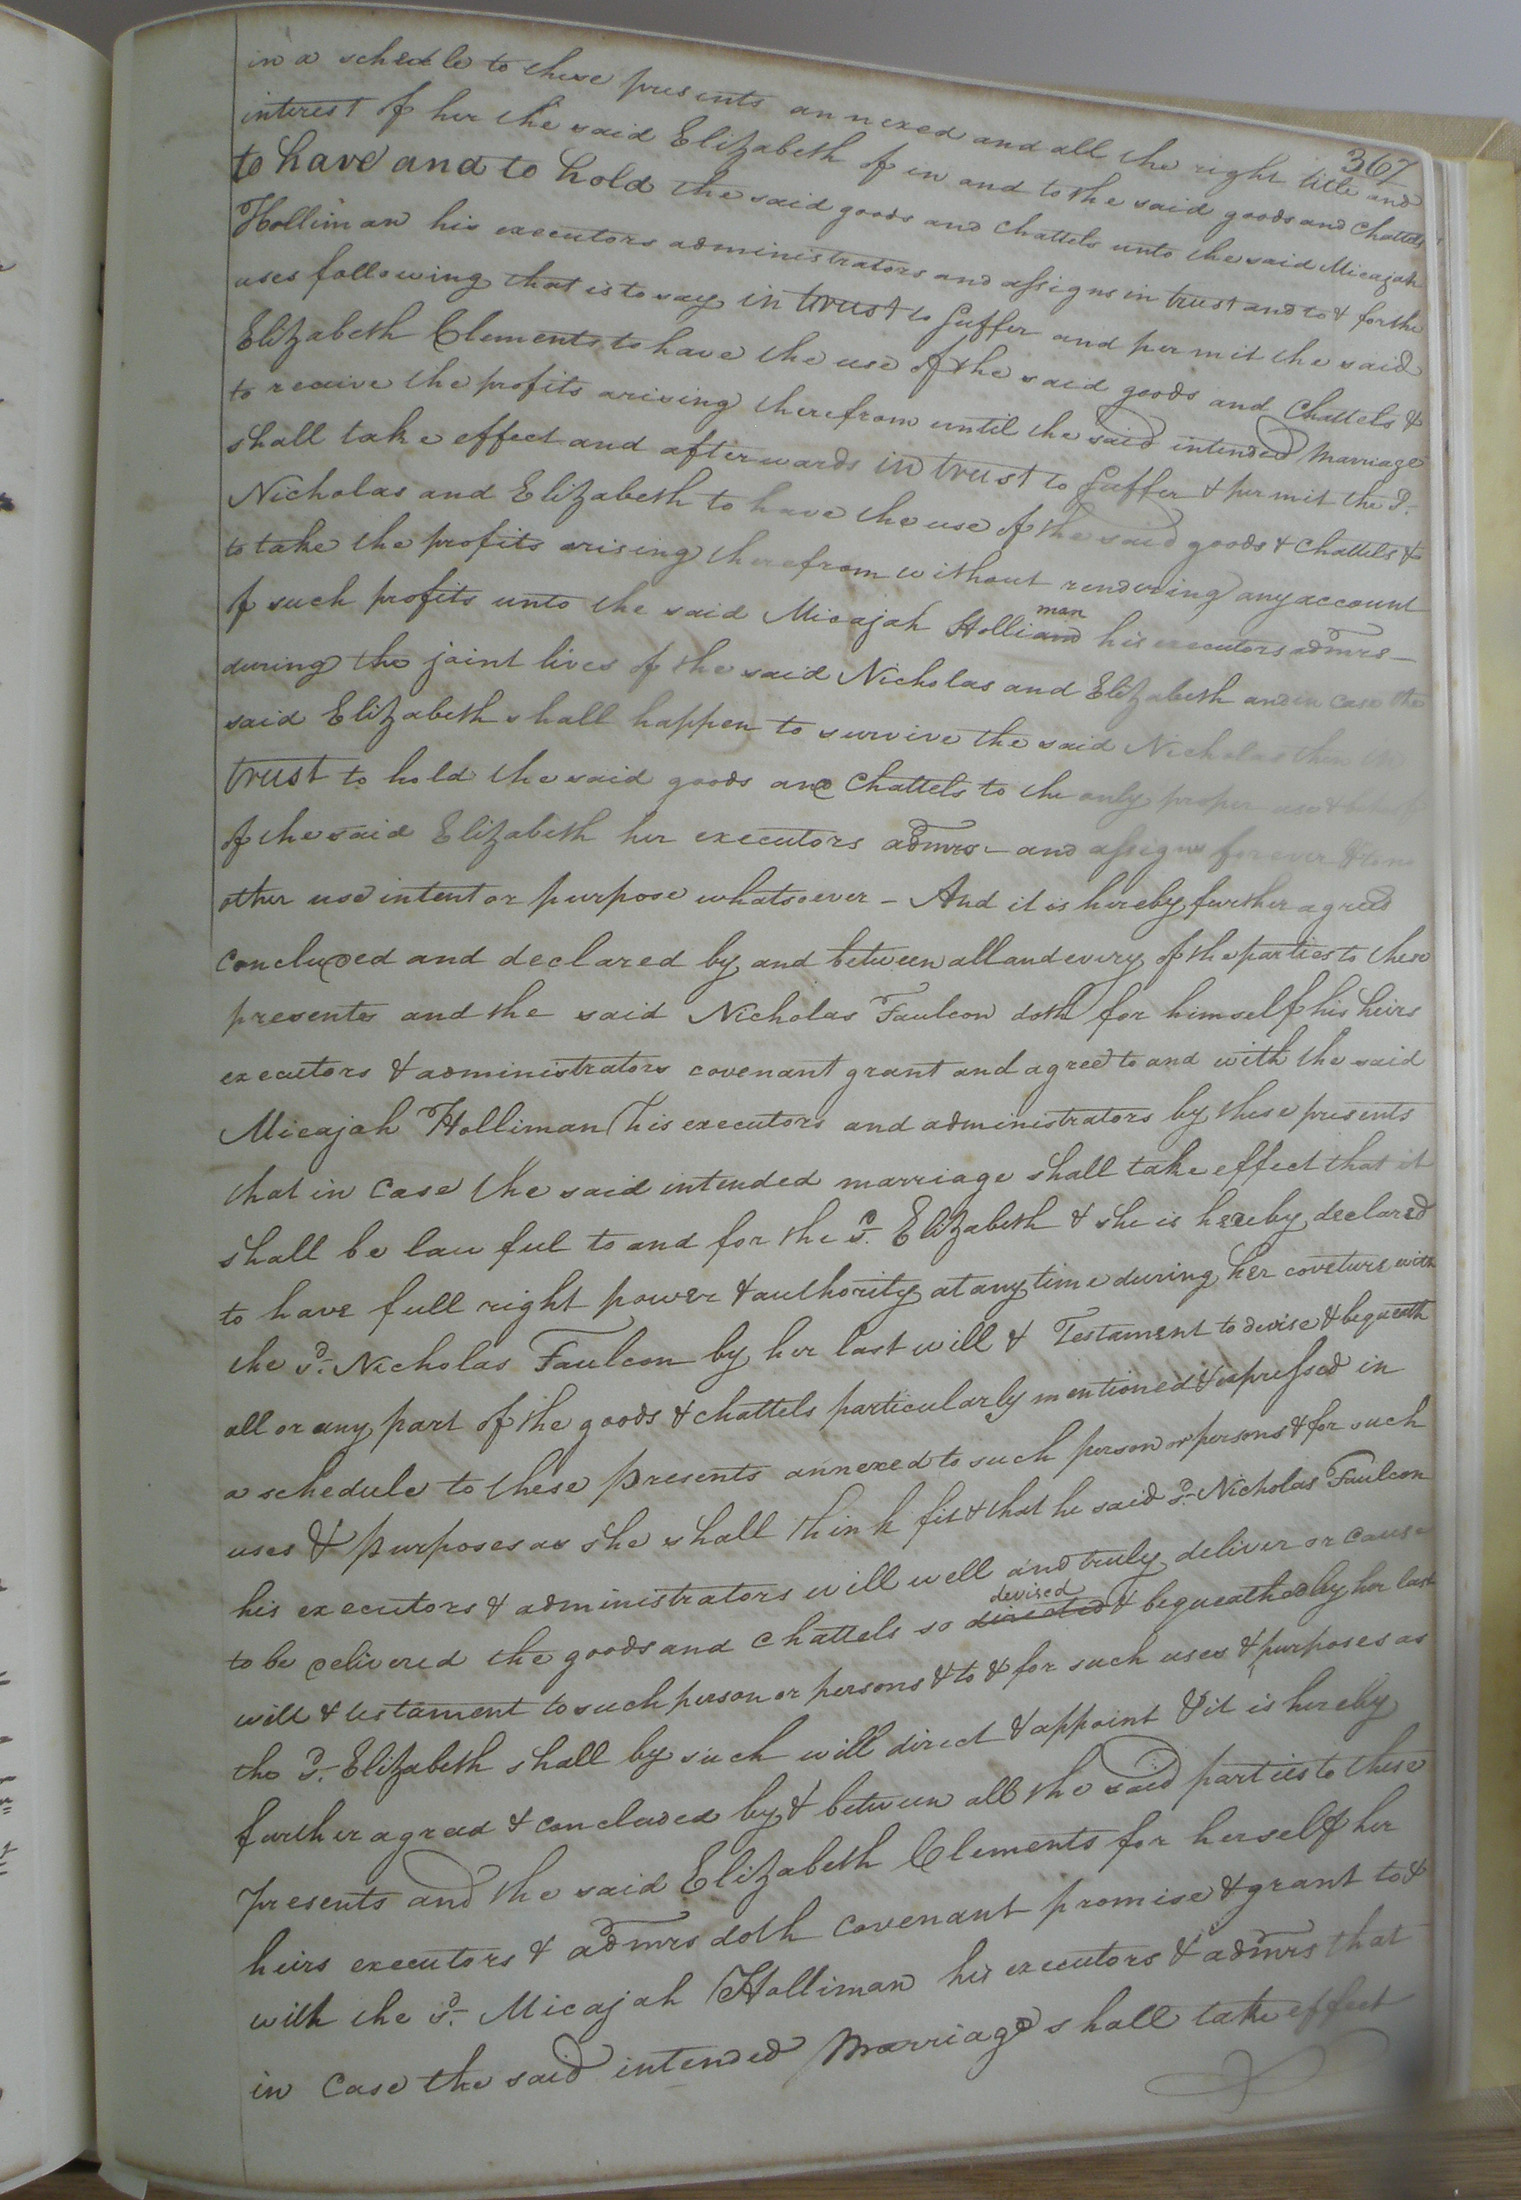 367
in a schedule to these presents annexed and all the right title and
interest of her the said Elizabeth of in and to the said goods and Chattels
to have and to hold the said goods and Chattels unto the said Micajah
Holliman his executors administrators and assigns in trust and to & for the
uses following that is to say in trust to suffer and permit the said
Elizabeth Clements to have the use of the said goods and Chattels &
to receive the profits arising therefrom until the said intended Marriage
shall take effect and afterwards in trust to suffer & permit the sd.
Nicholas and Elizabeth to have the use of the said goods & Chattels &
to take the profits arising therefrom without rendering any account
of such profits unto the said Micajah Holliand man his executors admrs
during the joint lives of the said Nicholas and Elizabeth and in case the
said Elizabeth shall happen to survive the said Nicholas then in
trust to hold the said goods and Chattels to the only proper use &
of the said Elizabeth her executors admrs - and assigns forever & to no
other use intent or purpose whatsoever - And it is hereby further agreed
concluded and declared by and between all and every of the parties to these
presents and the said Nicholas Faulcon doth for himself his heirs
executors & administrators covenant grant and agree to and with the said
Micajah Holliman his executors and administrators by these presents
that in case the said intended marriage shall take effect that it
shall be lawful to and for the sd. Elizabeth & she is hereby declared
to have full right power & authority at any time during her coveture with
the sd. Nicholas Faulcon by her last will & Testament to devise & bequeath
all or any part of the goods & chattels particularly mentioned & expressed in
a schedule to these presents annexed to such person or persons & for such
uses & purposes as she shall think fit & that he said sd. Nicholas Faulcon
his executors & administrators will well and truly deliver or cause
to be delivered the goods and chattels so directed devised & bequeathed by her last
will & testament to such person or persons & to & for such uses & purposes as
the sd. Elizabeth shall by such will direct & appoint & it is hereby
further agreed & concluded by & between all the said parties to these
presents and the said Elizabeth Clements for herself her
heirs executors & admrs doth covenant promise & grant to &
with the sd. Micajah Holliman his executors & admrs that
in case the said intended Marriage shall take effect